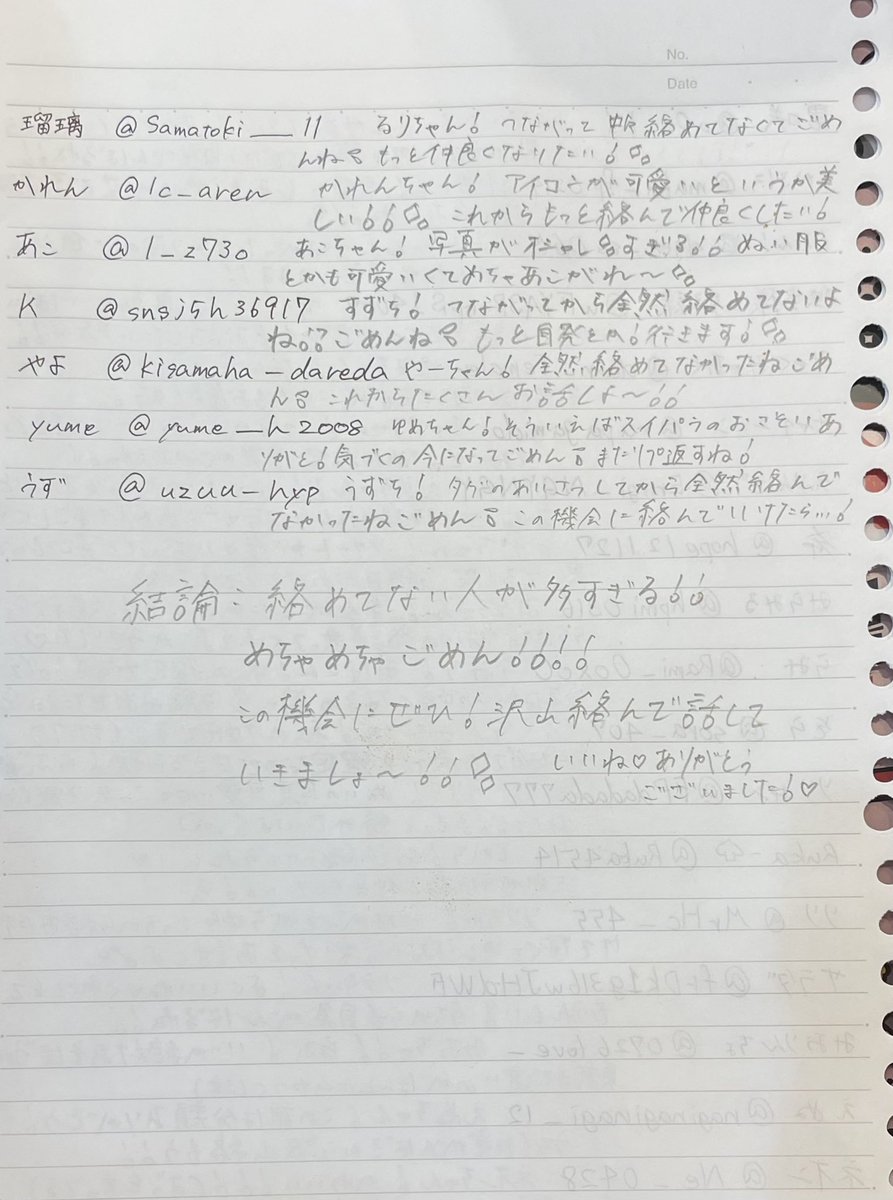 No.
Date
瑠璃 @Samatoki__11 るりちゃん! つながって中々絡めてなくてごめ
んね もっと仲良くなりたい!
かれん @lc_aren かれんちゃん! アイコンが可愛いというか美
しい!! これからもっと絡んで仲良くしたい!
あこ @l_z73o あこちゃん! 写真がオシャレすぎる!! ぬい服
とかも可愛いくてめちゃあこがれ〜
K @snsj5h36917 すずち! つながってから全然絡めてないよ
ね!? ごめんね もっと自発とか!行きます!
やよ @kisamaha_dareda やーちゃん! 全然絡めてなかったねごめ
ん これからたくさんお話しよ〜!!
yume @yume_h2008 ゆめちゃん!そういえばスイパラのおさそいあ
りがと!気づくの今になってごめん またリプ返すね!
うず @uzuu_hxp うずち! タグのあいさつしてから全然絡んで
なかったねごめん この機会に絡んでいけたら...!
結論:絡めてない人が多すぎる!!
めちゃめちゃごめん!!!!
この機会にぜひ!沢山絡んで話して
いきましょ〜!!
いいね♡ありがとう
ございました!♡